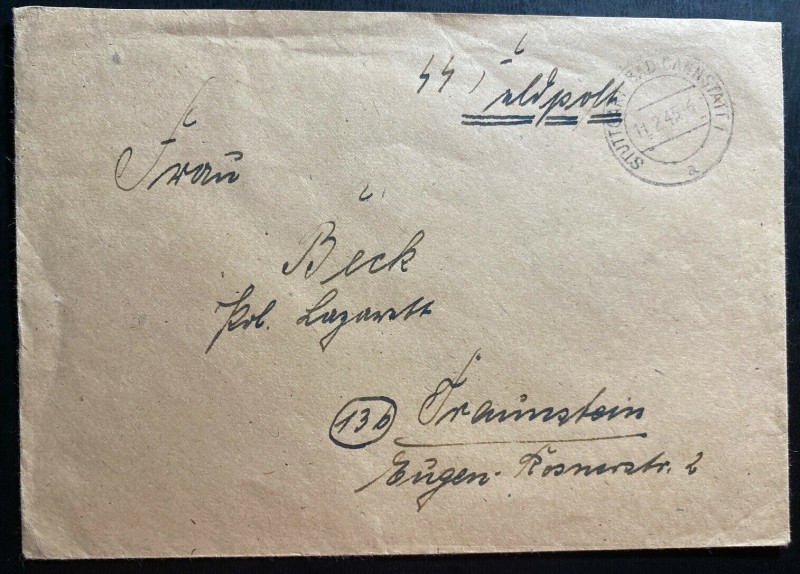 SS Feldpost
STUTTGART-BAD CANNSTATT 1
11.2.45
a
Frau
Beck
Pol. Lazarett
13b Traunstein
Eugen-Rosnerstr. 2